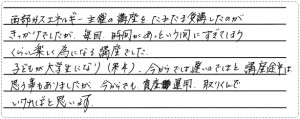 西部ガスエネルギー主催の講座をたまたま受講したのが
きっかけでしたが、毎回、時間があっという間にすぎてしまう
くらい楽しく為になる講座でした。
子どもが大学生になり(県外)、今からでは遅いのではと講座途中は
思う事もありましたが、今からでも資産運用、取りくんで
いければと思います。